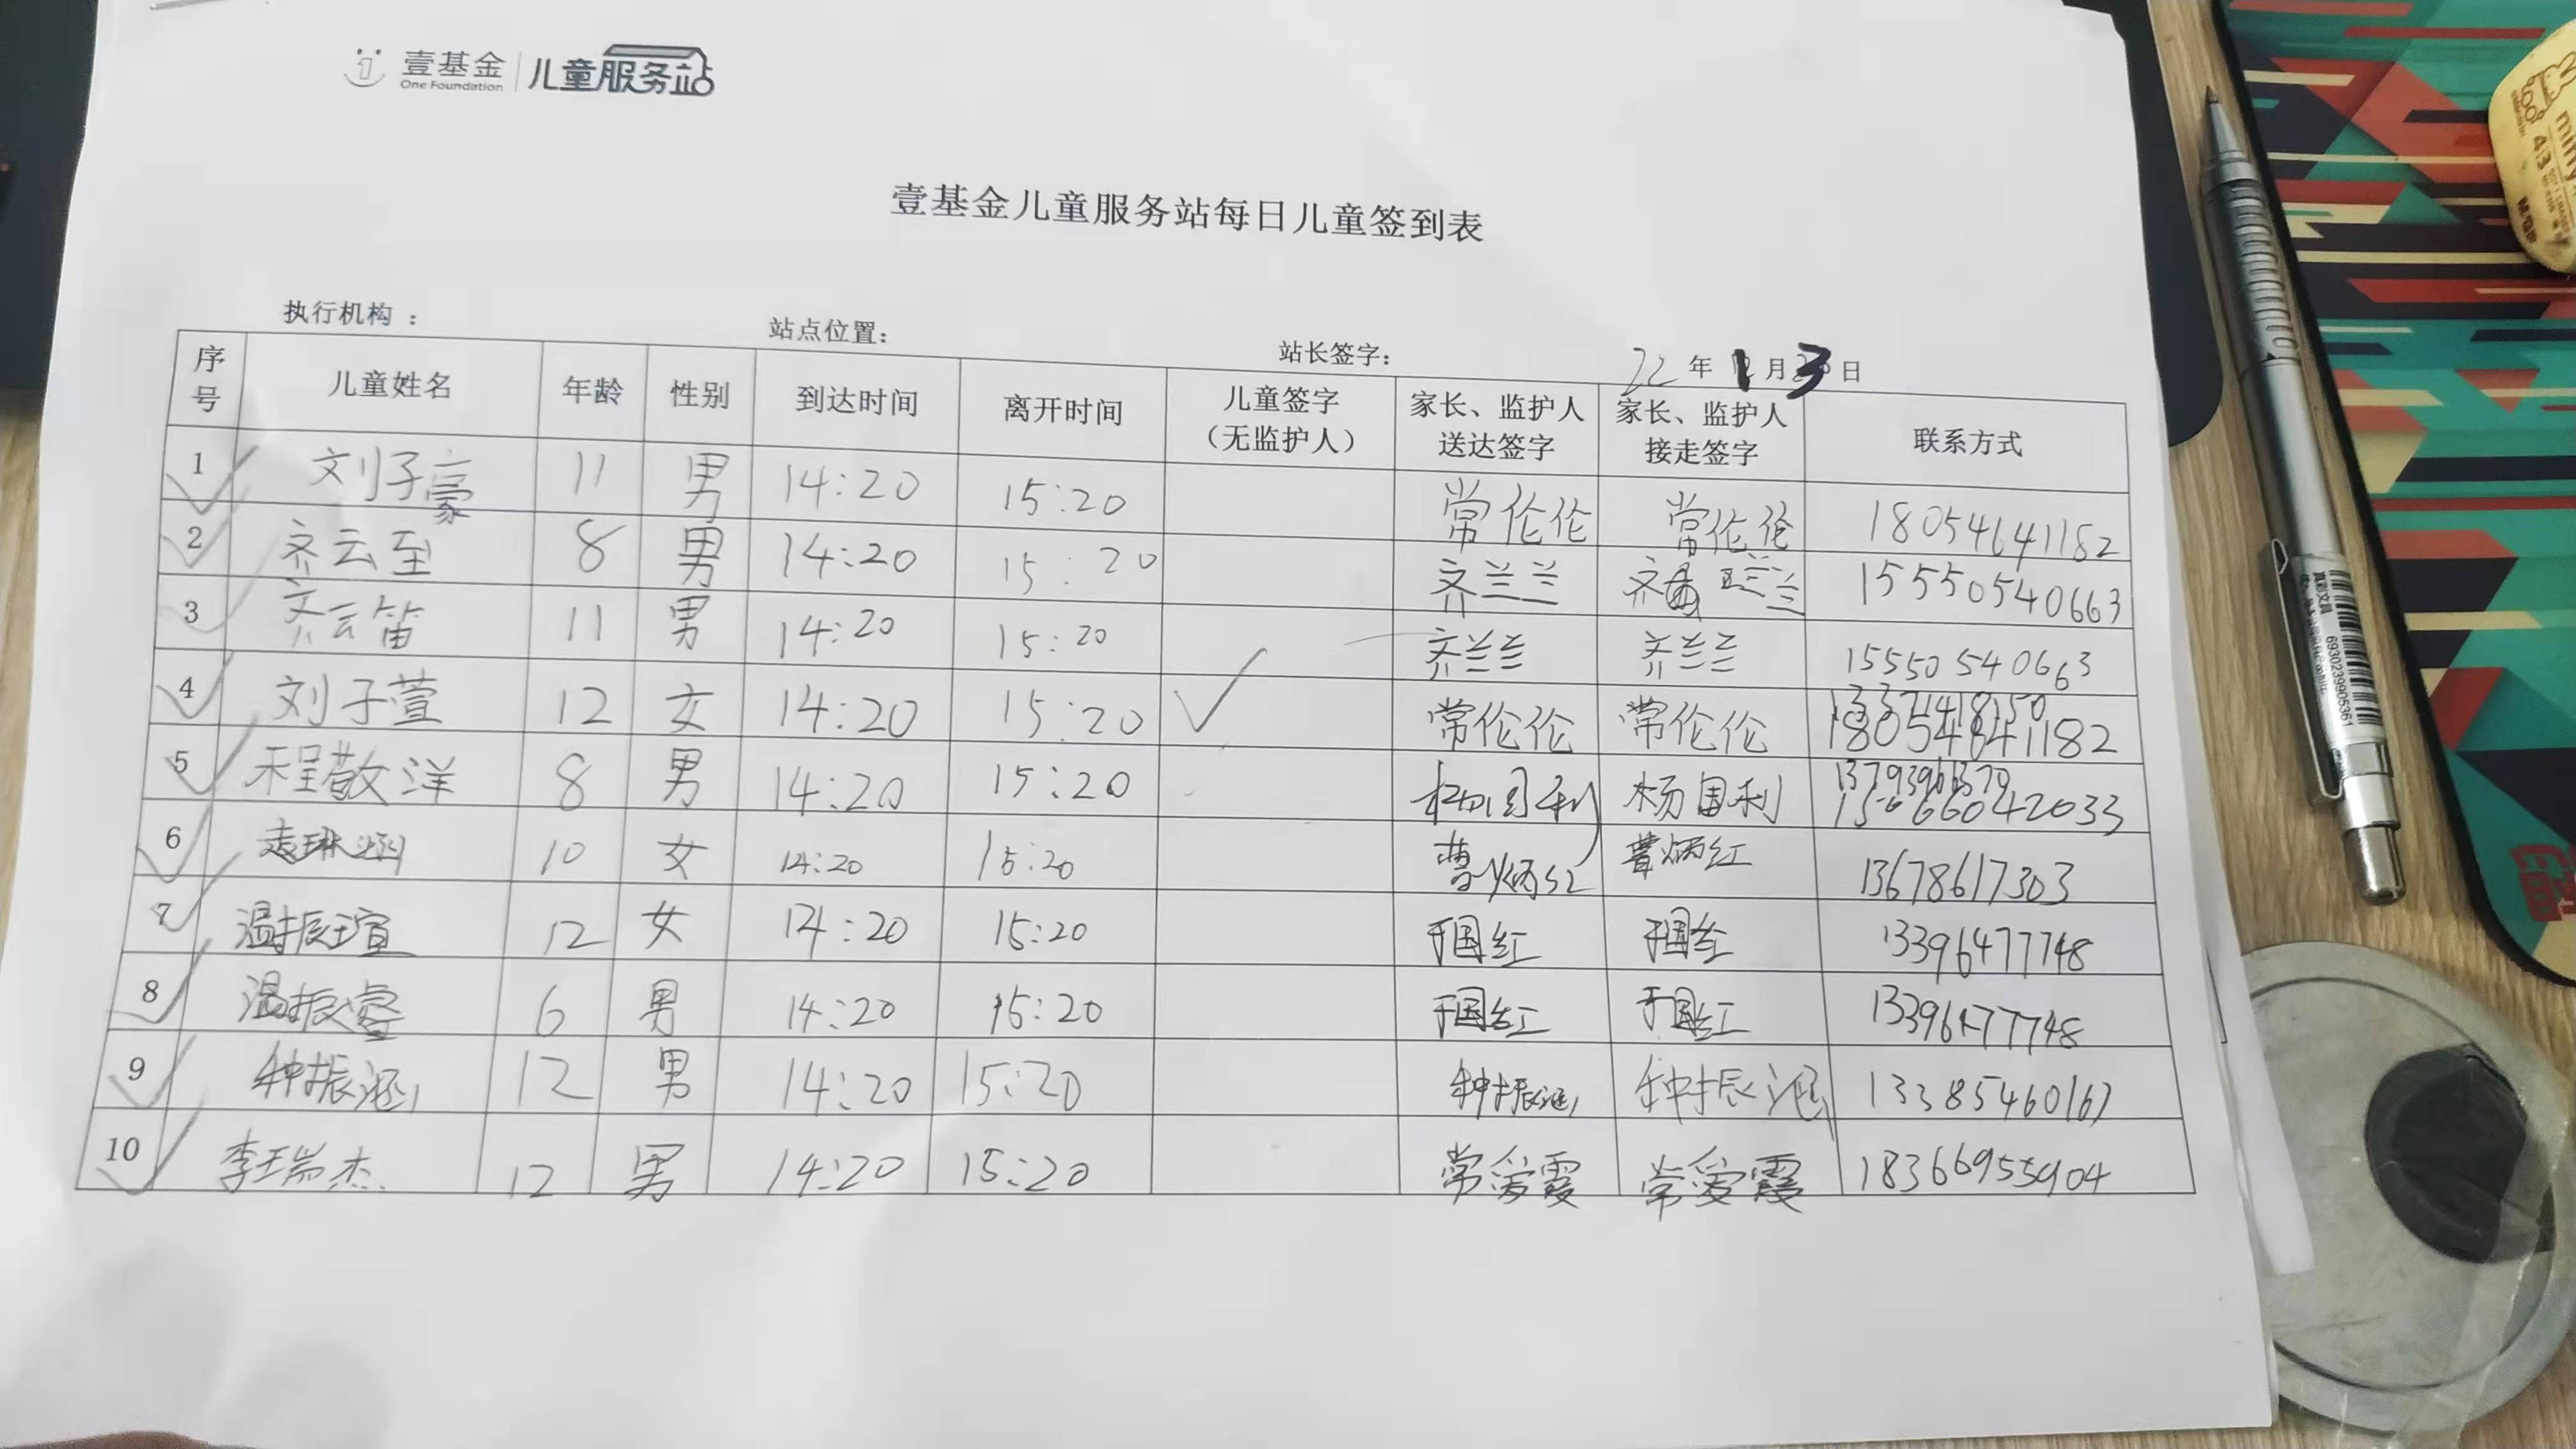 壹基金 儿童服务站
One Foundation
壹基金儿童服务站每日儿童签到表
执行机构： 站点位置： 站长签字： 22年1月3日
序号 儿童姓名 年龄 性别 到达时间 离开时间 儿童签字（无监护人） 家长、监护人送达签字 家长、监护人接走签字 联系方式
1 刘子豪 11 男 14:20 15:20 常伦伦 常伦伦 18054641182
2 齐云至 8 男 14:20 15:20 齐兰兰 齐兰兰 15550540663
3 齐云笛 11 男 14:20 15:20 齐兰兰 齐兰兰 15550540663
4 刘子萱 12 女 14:20 15:20 ✓ 常伦伦 常伦伦 18054641182
5 程敬洋 8 男 14:20 15:20 杨国利 杨国利
6 10 女 14:20 15:20 曹炳红 曹炳红 13678617303
7 温振瑄 12 女 14:20 15:20 于国红 于国红 13396477748
8 温振睿 6 男 14:20 15:20 于国红 于国红 13396477748
9 种振涵 12 男 14:20 15:20 种振涵 种振涵 13385460167
10 李瑞杰 12 男 14:20 15:20 常爱霞 常爱霞 18366955904
真彩文具
6930239905361
miffy
43
M&G